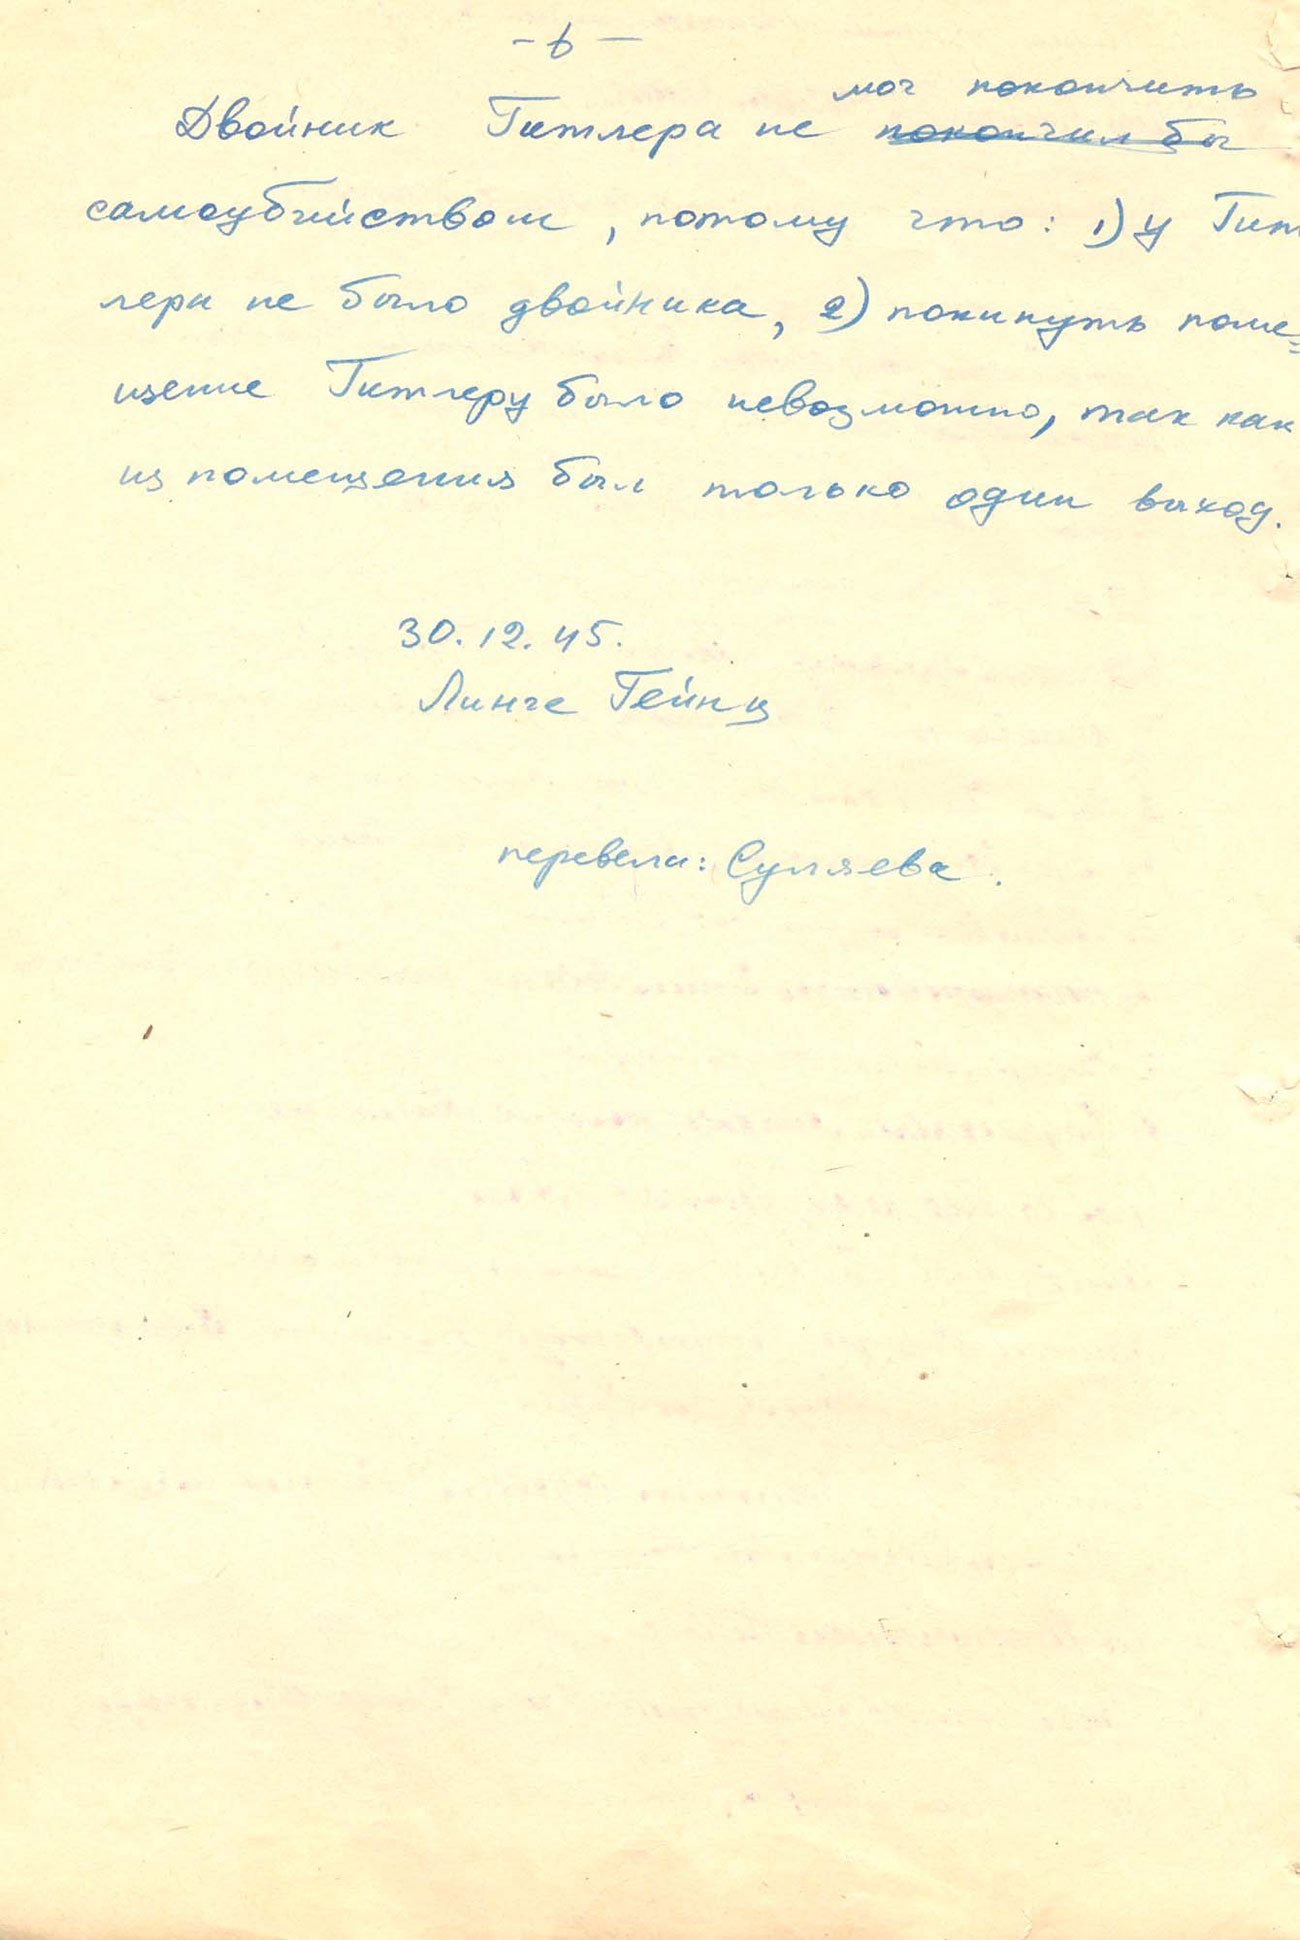 - 6 -
мог покончить
Двойник Гитлера не покончил бы
самоубийством, потому что: 1) у Гит
лера не было двойника, 2) покинуть поме
щение Гитлеру было невозможно, так как
из помещения был только один выход.
30.12.45.
Линге Гейнц
перевела: Суляева.